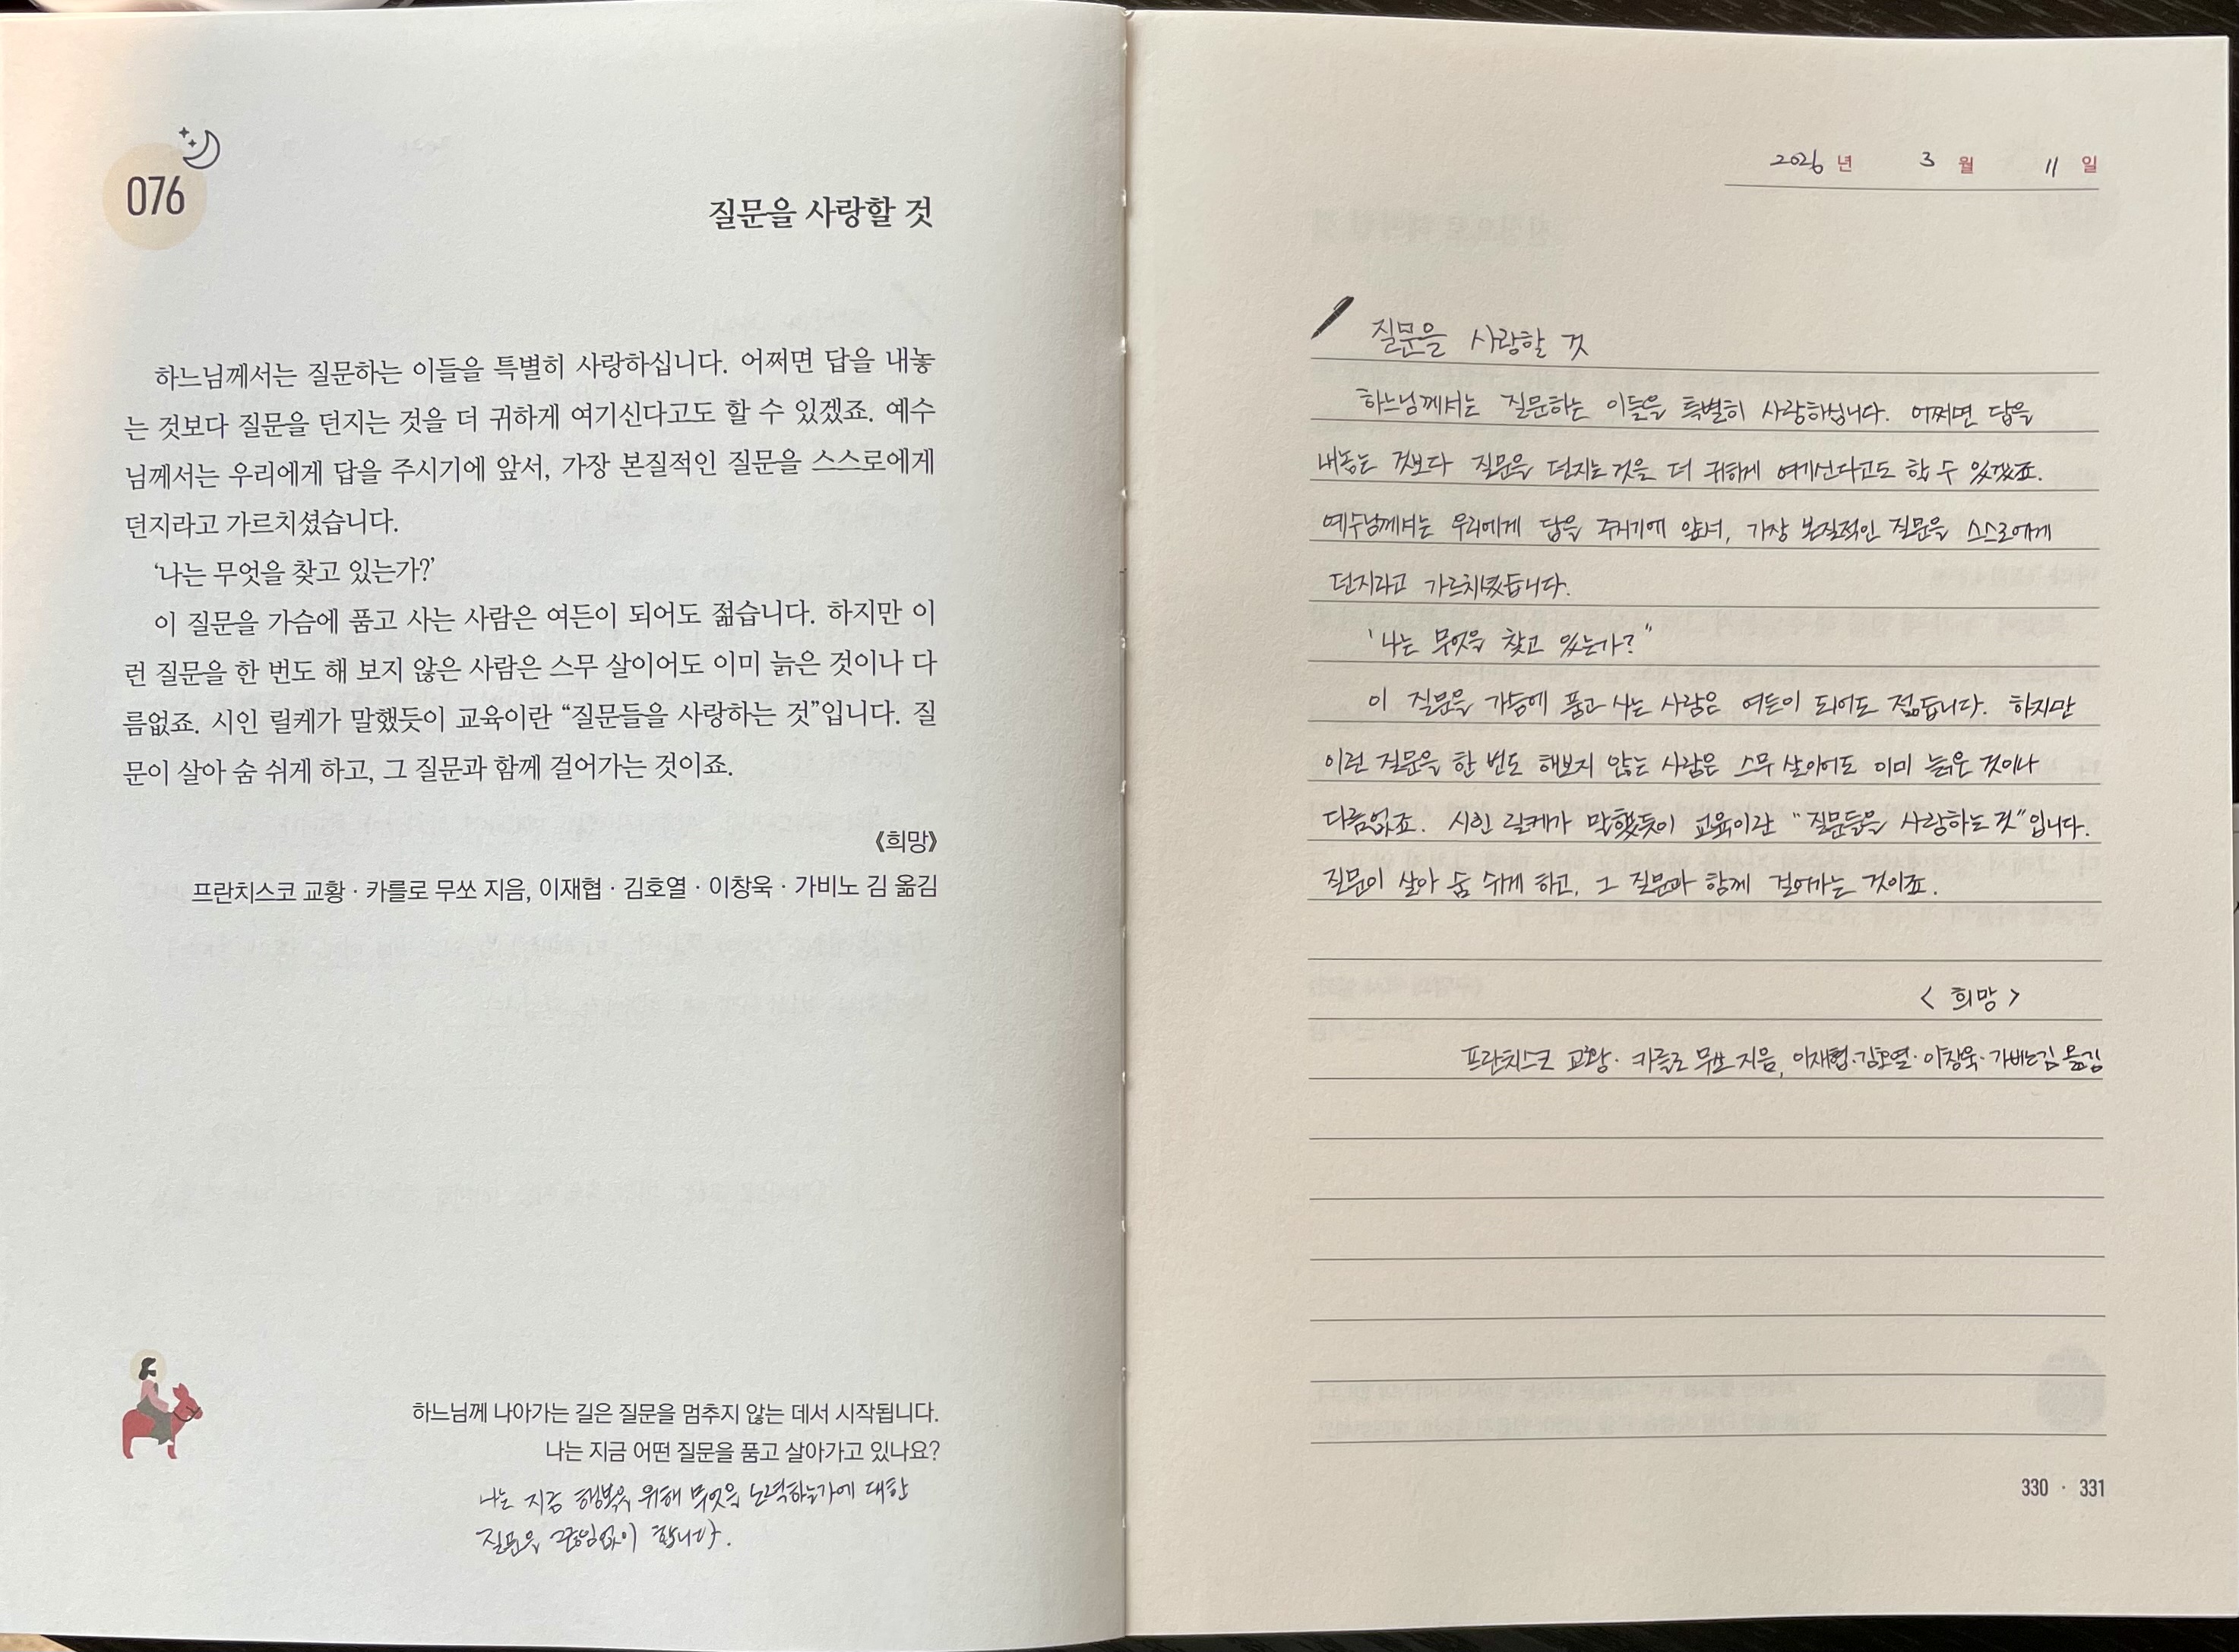 076
질문을 사랑할 것
하느님께서는 질문하는 이들을 특별히 사랑하십니다. 어쩌면 답을 내놓
는 것보다 질문을 던지는 것을 더 귀하게 여기신다고도 할 수 있겠죠. 예수
님께서는 우리에게 답을 주시기에 앞서, 가장 본질적인 질문을 스스로에게
던지라고 가르치셨습니다.
‘나는 무엇을 찾고 있는가?’
이 질문을 가슴에 품고 사는 사람은 여든이 되어도 젊습니다. 하지만 이
런 질문을 한 번도 해 보지 않은 사람은 스무 살이어도 이미 늙은 것이나 다
름없죠. 시인 릴케가 말했듯이 교육이란 “질문들을 사랑하는 것”입니다. 질
문이 살아 숨 쉬게 하고, 그 질문과 함께 걸어가는 것이죠.
《희망》
프란치스코 교황 · 카를로 무쏘 지음, 이재협 · 김호열 · 이창욱 · 가비노 김 옮김
하느님께 나아가는 길은 질문을 멈추지 않는 데서 시작됩니다.
나는 지금 어떤 질문을 품고 살아가고 있나요?
나는 지금 행복을 위해 무엇을 노력하는가에 대한
질문을 끊임없이 합니다.
2026 년 3 월 11 일
질문을 사랑할 것
하느님께서는 질문하는 이들을 특별히 사랑하십니다. 어쩌면 답을
내놓는 것보다 질문을 던지는 것을 더 귀하게 여기신다고도 할 수 있겠죠.
예수님께서는 우리에게 답을 주시기에 앞서, 가장 본질적인 질문을 스스로에게
던지라고 가르치셨습니다.
'나는 무엇을 찾고 있는가?"
이 질문을 가슴에 품고 사는 사람은 여든이 되어도 젊습니다. 하지만
이런 질문을 한 번도 해보지 않는 사람은 스무 살이어도 이미 늙은 것이나
다름없죠. 시인 릴케가 말했듯이 교육이란 "질문들을 사랑하는 것"입니다.
질문이 살아 숨 쉬게 하고, 그 질문과 함께 걸어가는 것이죠.
< 희망 >
프란치스코 교황· 카를로 무쏘 지음, 이재협·김호열·이창욱·가비노김 옮김
330 · 331